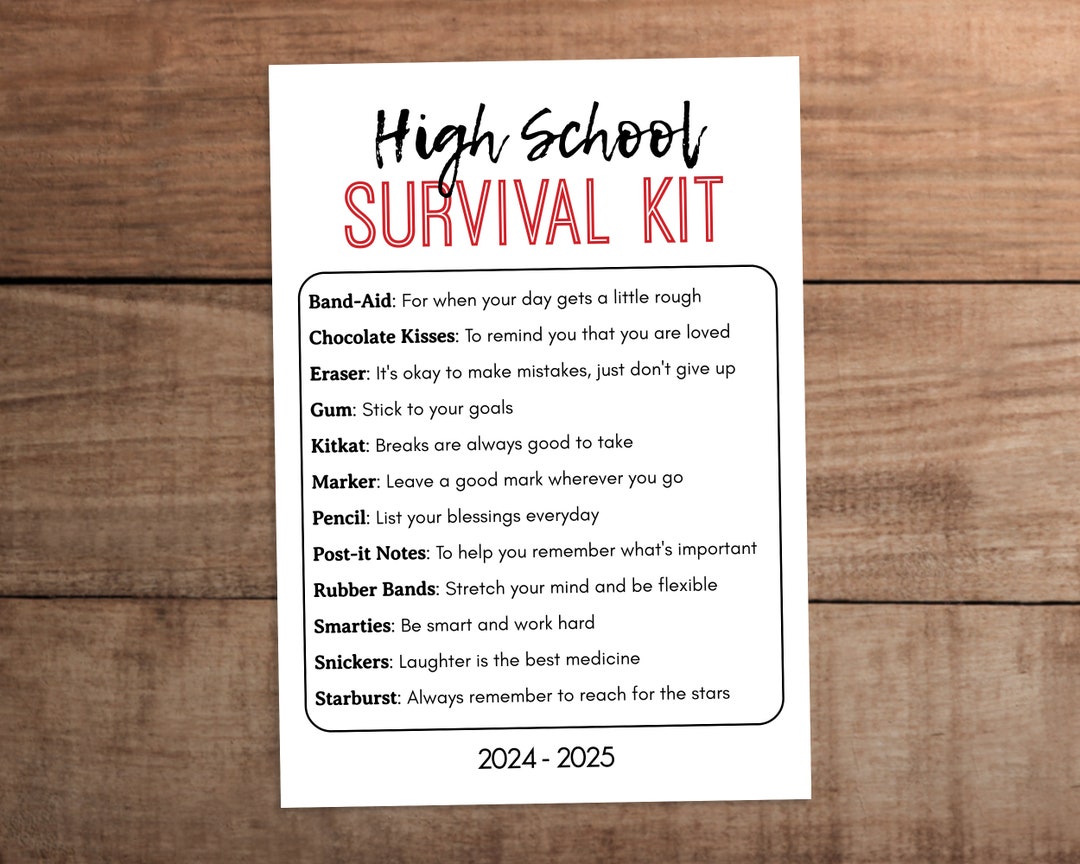 High School
SURVIVAL KIT
Band-Aid: For when your day gets a little rough
Chocolate Kisses: To remind you that you are loved
Eraser: It's okay to make mistakes, just don't give up
Gum: Stick to your goals
Kitkat: Breaks are always good to take
Marker: Leave a good mark wherever you go
Pencil: List your blessings everyday
Post-it Notes: To help you remember what's important
Rubber Bands: Stretch your mind and be flexible
Smarties: Be smart and work hard
Snickers: Laughter is the best medicine
Starburst: Always remember to reach for the stars
2024 - 2025